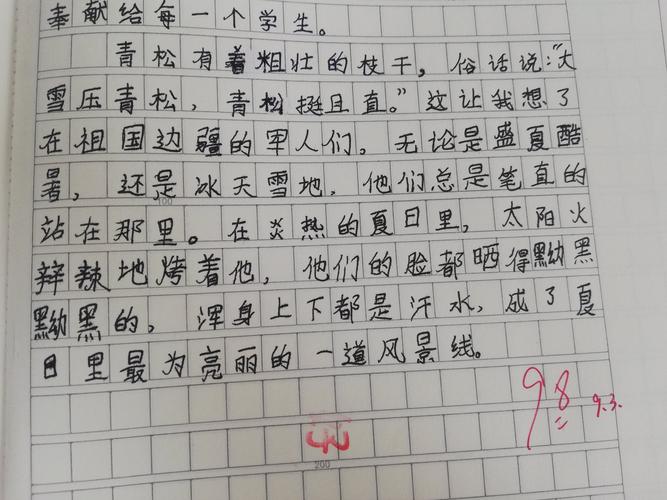 奉献给每一个学生。
青松有着粗壮的枝干，俗话说："大
雪压青松，青松挺且直。"这让我想了
在祖国边疆的军人们。无论是盛夏酷
暑，还是冰天雪地，他们总是笔直的
站在那里。在炎热的夏日里，太阳火
辣辣地烤着他，他们的脸都晒得黝黑
黝黑的，浑身上下都是汗水，成了夏
日里最为亮丽的一道风景线。
98
9.3.
100
200